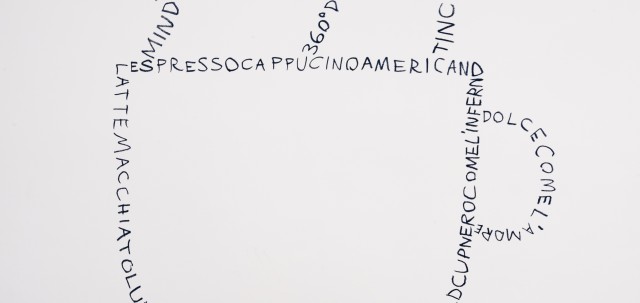 MIND
360°D
TINC
ESPRESSOCAPPUCINOAMERICANO
LATTEMACCHIATOLU
DCUPNEROCOMEL'INFERN
DOLCECOMEL'AMORE